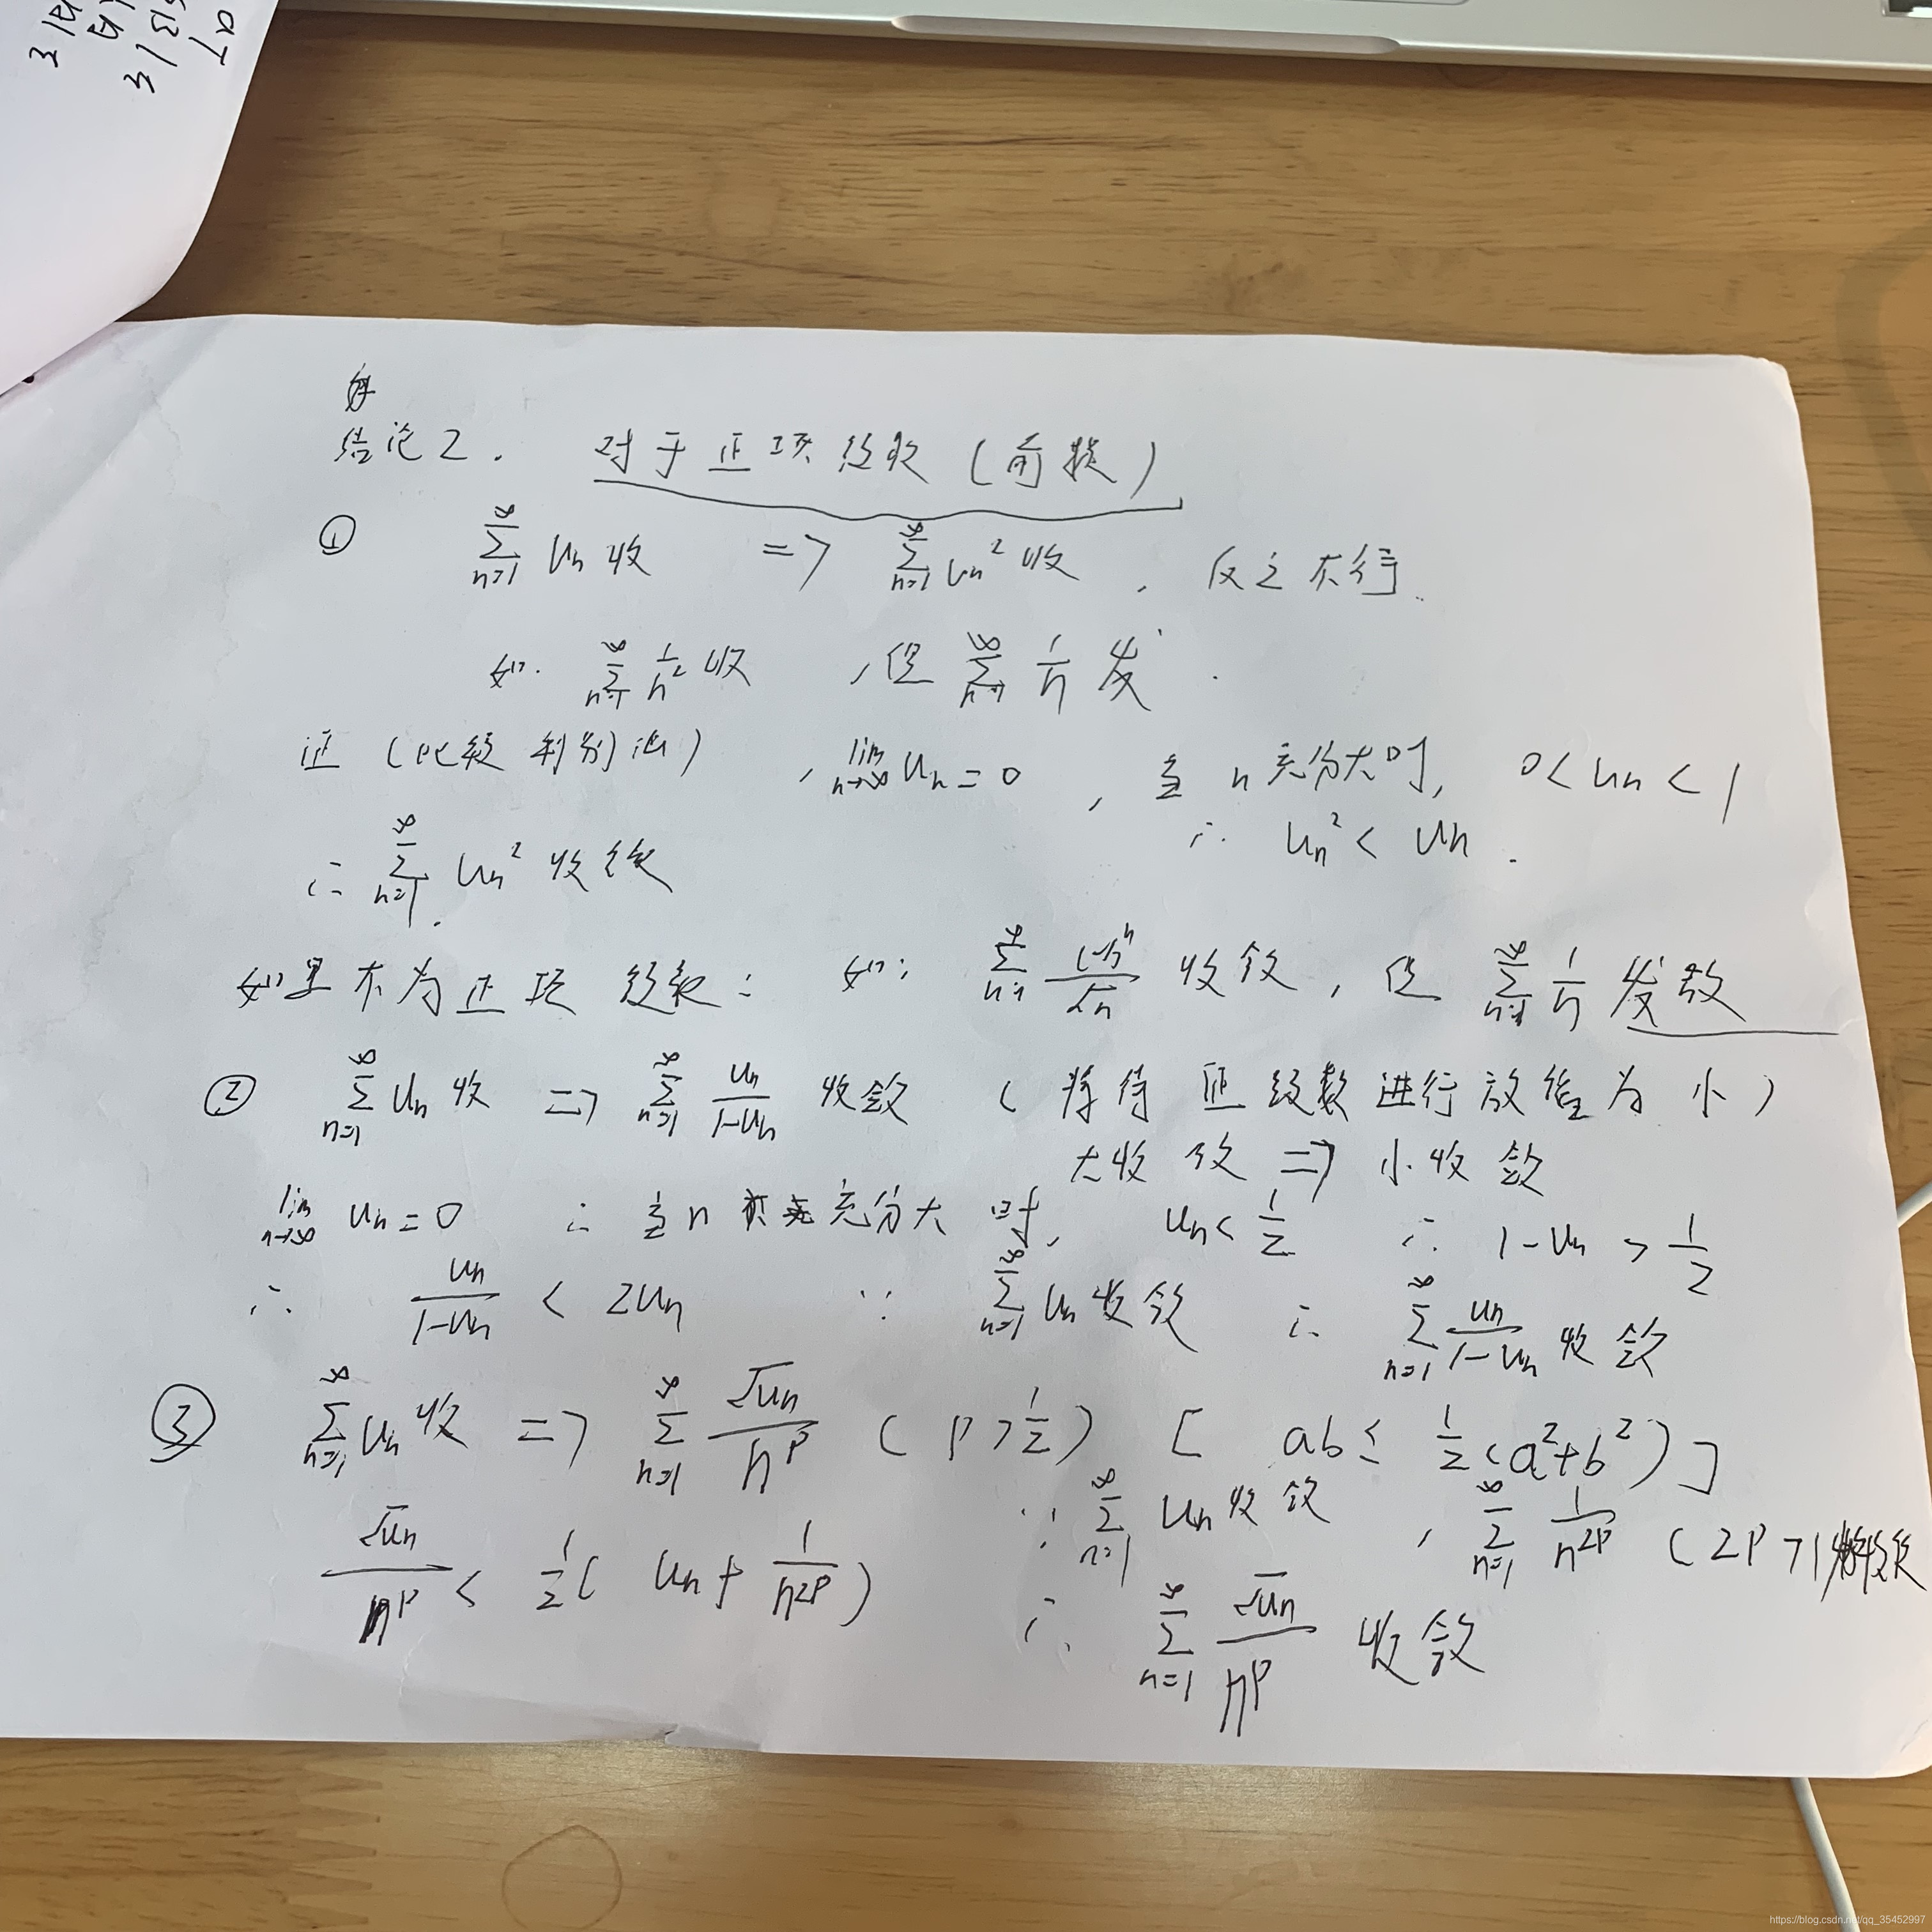 结论2. 对于正项级数(前提)
① ∑_{n=1}^{∞} u_n 收 => ∑_{n=1}^{∞} u_n² 收, 反之不行.
如. ∑_{n=1}^{∞} 1/n² 收, 但 ∑_{n=1}^{∞} 1/n 发.
证 (比较判别法), lim_{n→∞} u_n = 0, 当 n 充分大时, 0 < u_n < 1
∴ u_n² < u_n.
∴ ∑_{n=1}^{∞} u_n² 收敛.
如果不为正项级数: 如: ∑_{n=1}^{∞} (-1)^n/√n 收敛, 但 ∑_{n=1}^{∞} 1/n 发散
② ∑_{n=1}^{∞} u_n 收 => ∑_{n=1}^{∞} u_n/(1-u_n) 收敛 (将待证级数进行放缩为小)
大收敛 => 小收敛
lim_{n→∞} u_n = 0 ∴ 当 n 充分大时, u_n < 1/2 ∴ 1-u_n > 1/2
∴ u_n/(1-u_n) < 2u_n ∵ ∑_{n=1}^{∞} u_n 收敛 ∴ ∑_{n=1}^{∞} u_n/(1-u_n) 收敛
③ ∑_{n=1}^{∞} u_n 收 => ∑_{n=1}^{∞} √u_n/n^p (p>1/2) [ab ≤ 1/2(a²+b²)]
√u_n/n^p < 1/2(u_n + 1/n^{2p}) ∵ ∑_{n=1}^{∞} u_n 收敛, ∑_{n=1}^{∞} 1/n^{2p} (2p>1
∴ ∑_{n=1}^{∞} √u_n/n^p 收敛
https://blog.csdn.net/qq_35452997